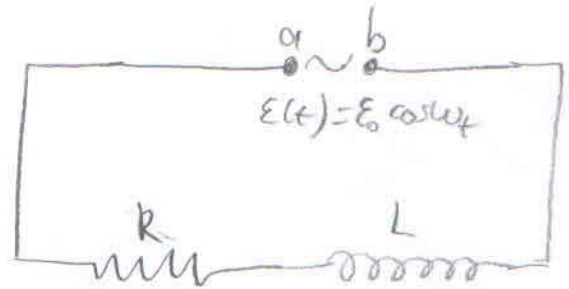 a ~ b
ε(t) = ε₀ cosωt
R L